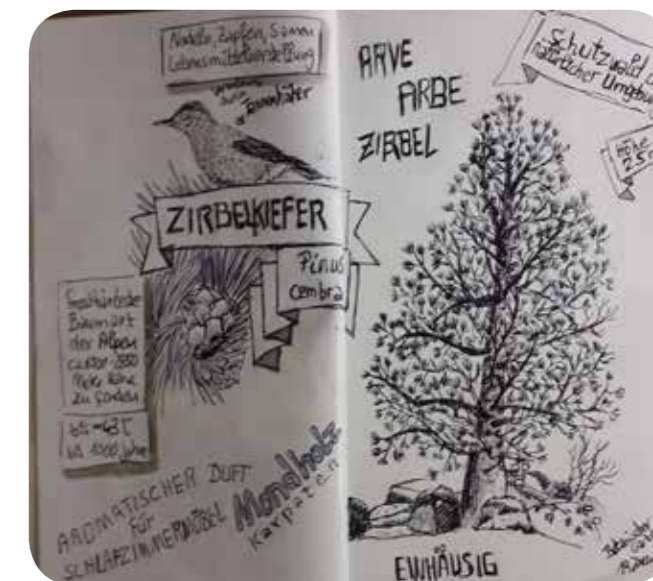 Nadeln, Zapfen, Samen
durch
Tannenhäher
ZIRBELKIEFER
Pinus
Cembra
Baumart
der Alpen
Meter Höhe
zu finden
bis -43°C
bis 1000 Jahre
AROMATISCHER DUFT
für
SCHLAFZIMMERMÖBEL
Mondholz
Karpaten
ARVE
ARBE
ZIRBEL
Schutzwald
natürlicher Umgebung
Höhe
25m
EINHÄUSIG